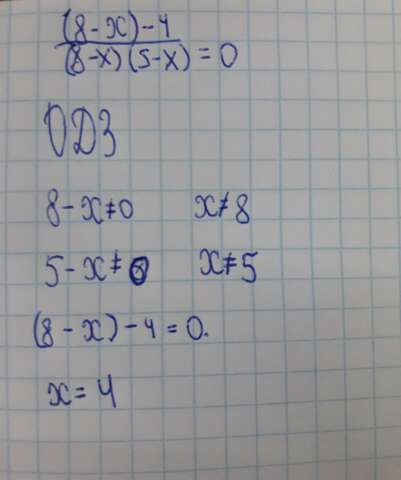 (8-x)-4
(8-x)(5-x) = 0
ОДЗ
8-x≠0 x≠8
5-x≠0 x≠5
(8-x)-4=0.
x=4